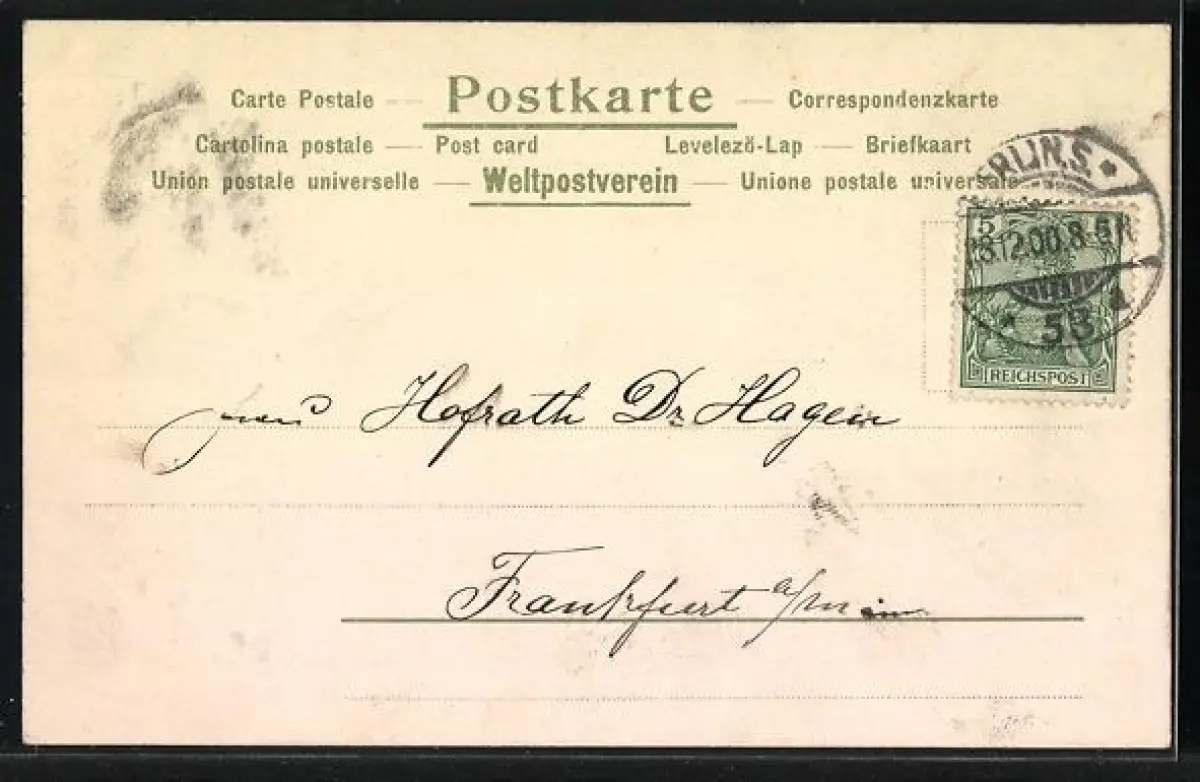 Carte Postale — Postkarte — Correspondenzkarte
Cartolina postale — Post card Levelező-Lap — Briefkaart
Union postale universelle — Weltpostverein — Unione postale universale
RLIN.S. *
5
12.00.8-
* 53 a
REICHSPOST
Frau Hofrath Dr. Hagen
Frankfurt a/Main